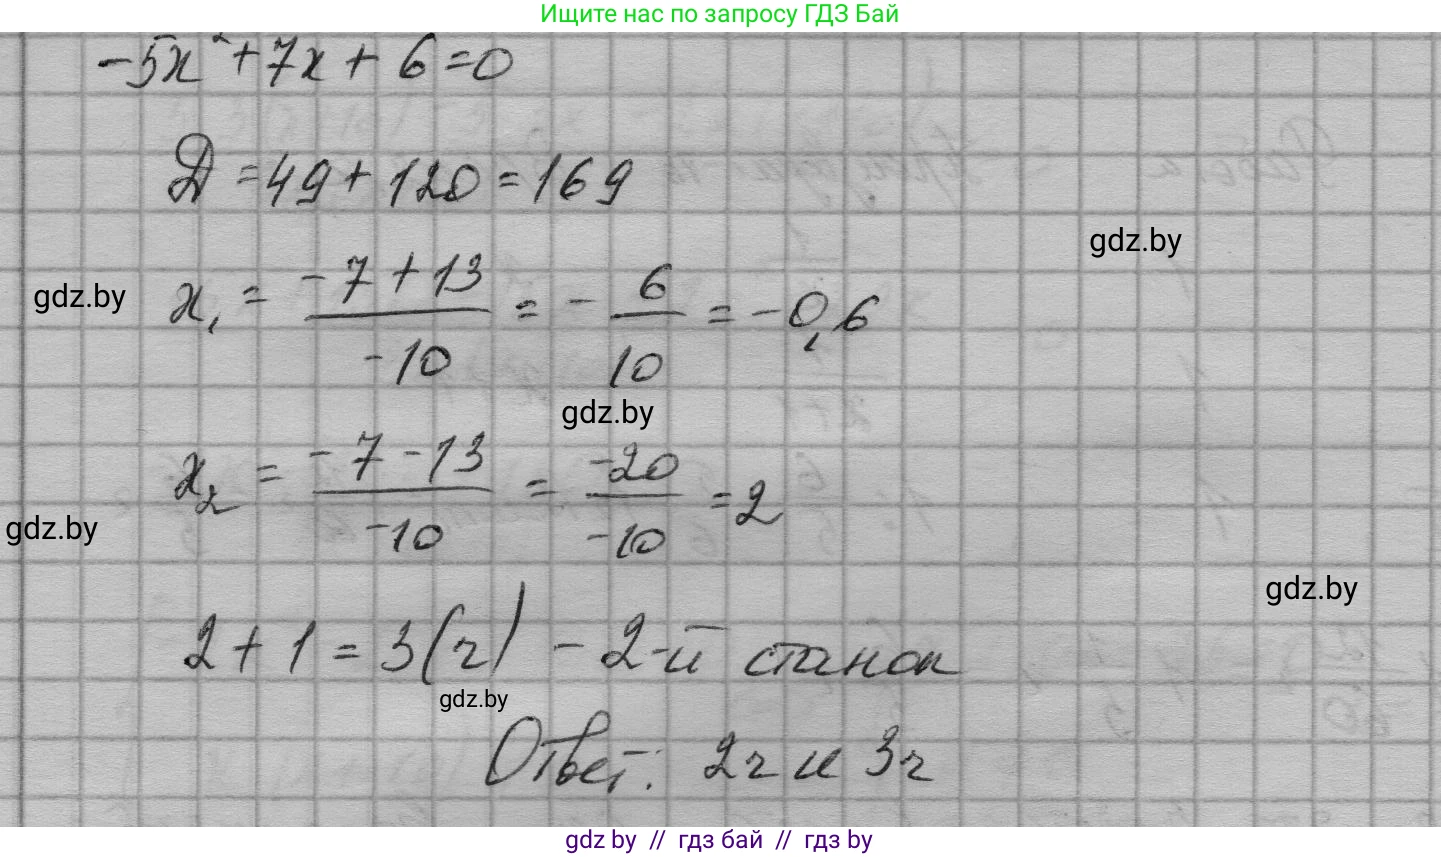 Ищите нас по запросу ГДЗ Бай
-5x²+7x+6=0
Д=49+120=169
gdz.by
gdz.by
x₁ = (-7+13)/(-10) = -6/10 = -0,6
gdz.by
x₂ = (-7-13)/(-10) = (-20)/(-10) = 2
gdz.by
gdz.by
2+1=3(ч) - 2-й станок
gdz.by
Ответ: 2ч и 3ч
gdz.by // гдз бай // гдз by